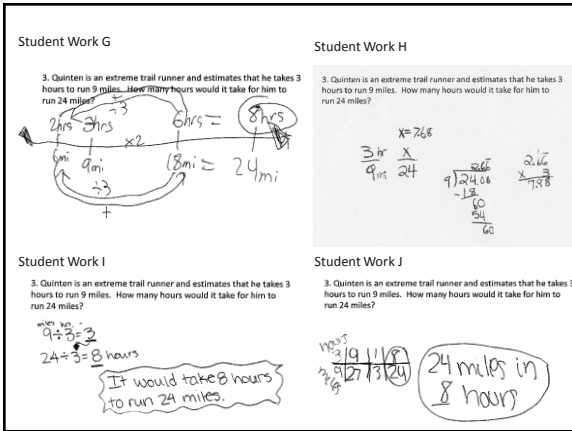 Student Work G
3. Quinten is an extreme trail runner and estimates that he takes 3
hours to run 9 miles. How many hours would it take for him to
run 24 miles?
÷3
2hrs 3hrs 6hrs = 8hrs
x2
6mi 9mi 18mi = 24mi
÷3
+
Student Work H
3. Quinten is an extreme trail runner and estimates that he takes 3
hours to run 9 miles. How many hours would it take for him to
run 24 miles?
X=7.68
3hr X
9mi 24
2.66
9)24.00
-18
60
54
60
2.66
x 3
7.98
Student Work I
3. Quinten is an extreme trail runner and estimates that he takes 3
hours to run 9 miles. How many hours would it take for him to
run 24 miles?
miles hrs.
9÷3=3
24÷3=8 hours
It would take 8 hours
to run 24 miles.
Student Work J
3. Quinten is an extreme trail runner and estimates that he takes 3
hours to run 9 miles. How many hours would it take for him to
run 24 miles?
hours 3 9 1 8
miles 9 27 3 24
24 miles in
8 hours